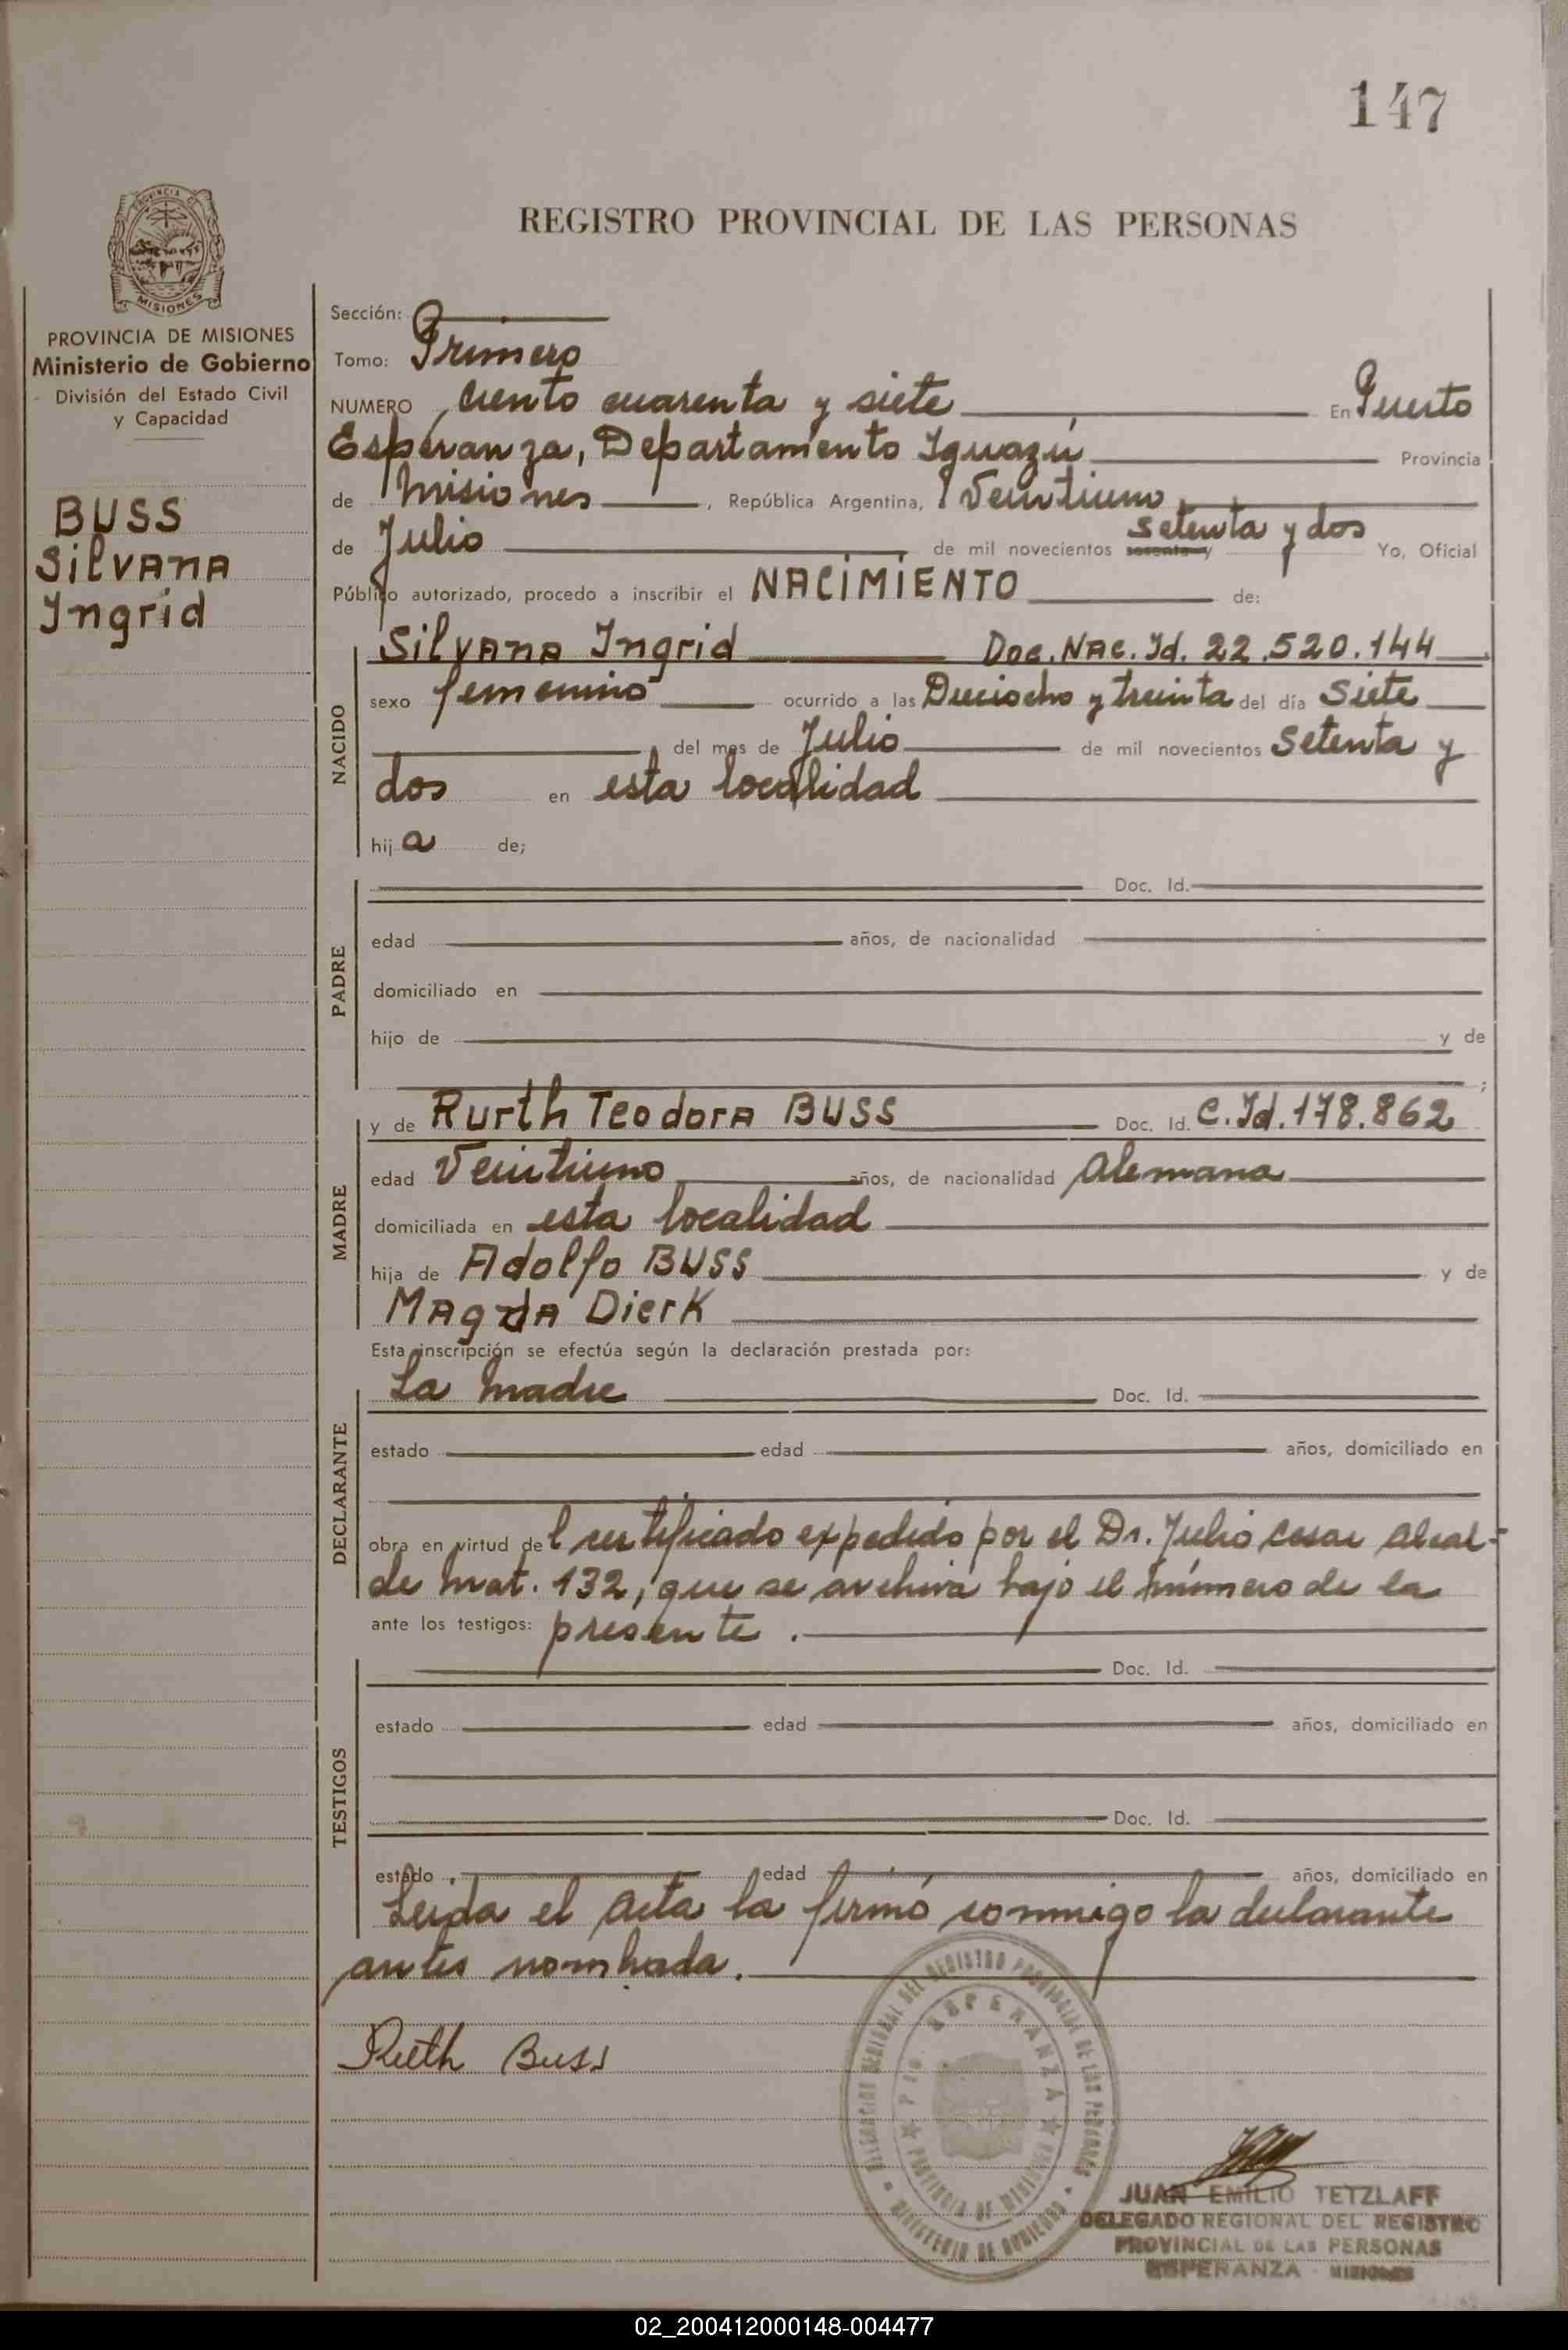 147
PROVINCIA DE
MISIONES
REGISTRO PROVINCIAL DE LAS PERSONAS
PROVINCIA DE MISIONES
Ministerio de Gobierno
División del Estado Civil
y Capacidad
BUSS
Silvana
Ingrid
Sección:
Tomo: Primero
NUMERO ciento cuarenta y siete En Puerto
Esperanza, Departamento Iguazú Provincia
de Misiones, República Argentina, Veintiuno
de Julio de mil novecientos sesenta y setenta y dos Yo, Oficial
Público autorizado, procedo a inscribir el NACIMIENTO de:
NACIDO
Silvana Ingrid Doc. Nac. Id. 22.520.144
sexo femenino ocurrido a las Dieciocho y treinta del día Siete
del mes de Julio de mil novecientos Setenta y
dos en esta localidad
hija de;
PADRE
Doc. Id.
edad años, de nacionalidad
domiciliado en
hijo de y de
;
MADRE
y de Rurth Teodora BUSS Doc. Id. C. Id. 178.862
edad Veintiuno años, de nacionalidad Alemana
domiciliada en esta localidad
hija de Adolfo BUSS y de
Magda Dierk
Esta inscripción se efectúa según la declaración prestada por:
DECLARANTE
La madre Doc. Id.
estado edad años, domiciliado en
obra en virtud del certificado expedido por el Dr. Julio Cesar Alcal-
de Mat. 132, que se archiva bajo el número de la
ante los testigos: presente.
TESTIGOS
Doc. Id.
estado edad años, domiciliado en
Doc. Id.
estado edad años, domiciliado en
Leida el Acta la firmó conmigo la declarante
antes nombrada.
Ruth Buss
DELEGACION REGIONAL DEL REGISTRO PROVINCIAL DE LAS PERSONAS
MINISTERIO DE GOBIERNO
Pto. ESPERANZA
PROVINCIA DE MISIONES
JUAN EMILIO TETZLAFF
DELEGADO REGIONAL DEL REGISTRO
PROVINCIAL DE LAS PERSONAS
ESPERANZA - MISIONES
02_200412000148-004477